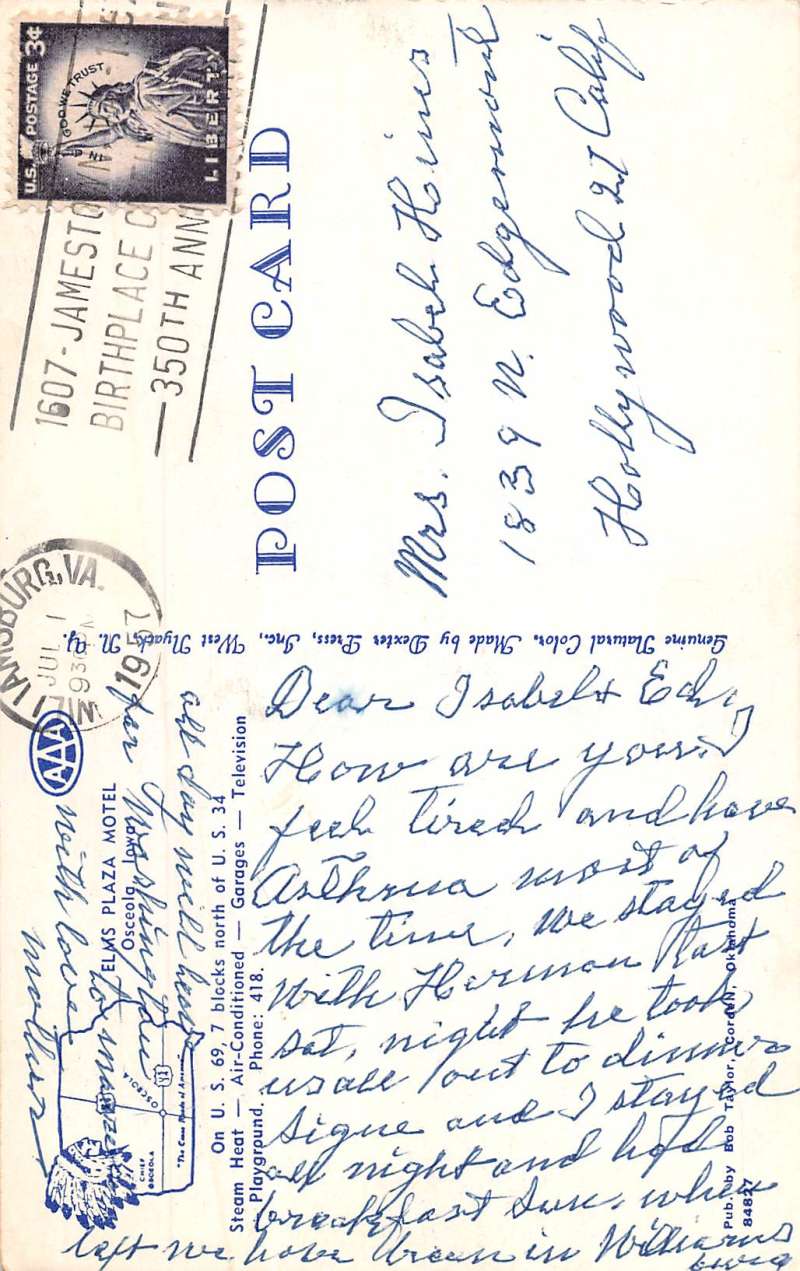 U.S. POSTAGE 3¢
IN GOD WE TRUST
LIBERTY
1607-JAMESTOWN
BIRTHPLACE O
350TH ANN
WILLIAMSBURG, VA.
JUL 1
930
1957
POST CARD
Mrs. Isabel Hines
1839 N. Edgemont
Hollywood 27 Calif
Genuine Natural Color. Made by Dexter Press, Inc., West Nyack, N. Y.
AAA
ELMS PLAZA MOTEL
Osceola, Iowa
On U. S. 69, 7 blocks north of U. S. 34
Steam Heat — Air-Conditioned — Garages — Television
Playground. Phone: 418.
CHIEF OSCEOLA
OSCEOLA
Dear Isabel & Ed,
How are you? I
feel tired and have
Asthma most of
the time, we stayed
with Herman last
sat, night he took
us all out to dinner
Signe and I stayed
all night and had
breakfast Sun, when
left we have been in Williams
burg
all day will leave
for Washington
to morrow
with love
mother
Pub. by Bob Taylor, Cordell, Oklahoma
84827